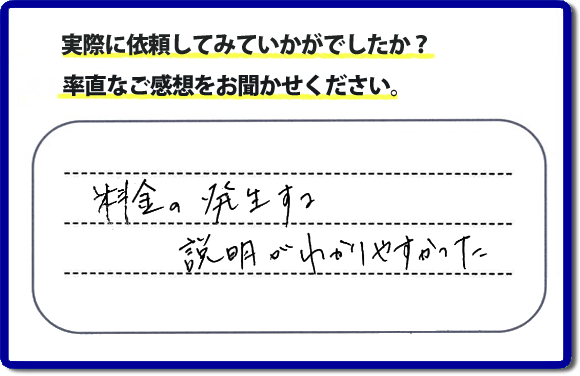 実際に依頼してみていかがでしたか？
率直なご感想をお聞かせください。
料金の発生する
説明がわかりやすかった